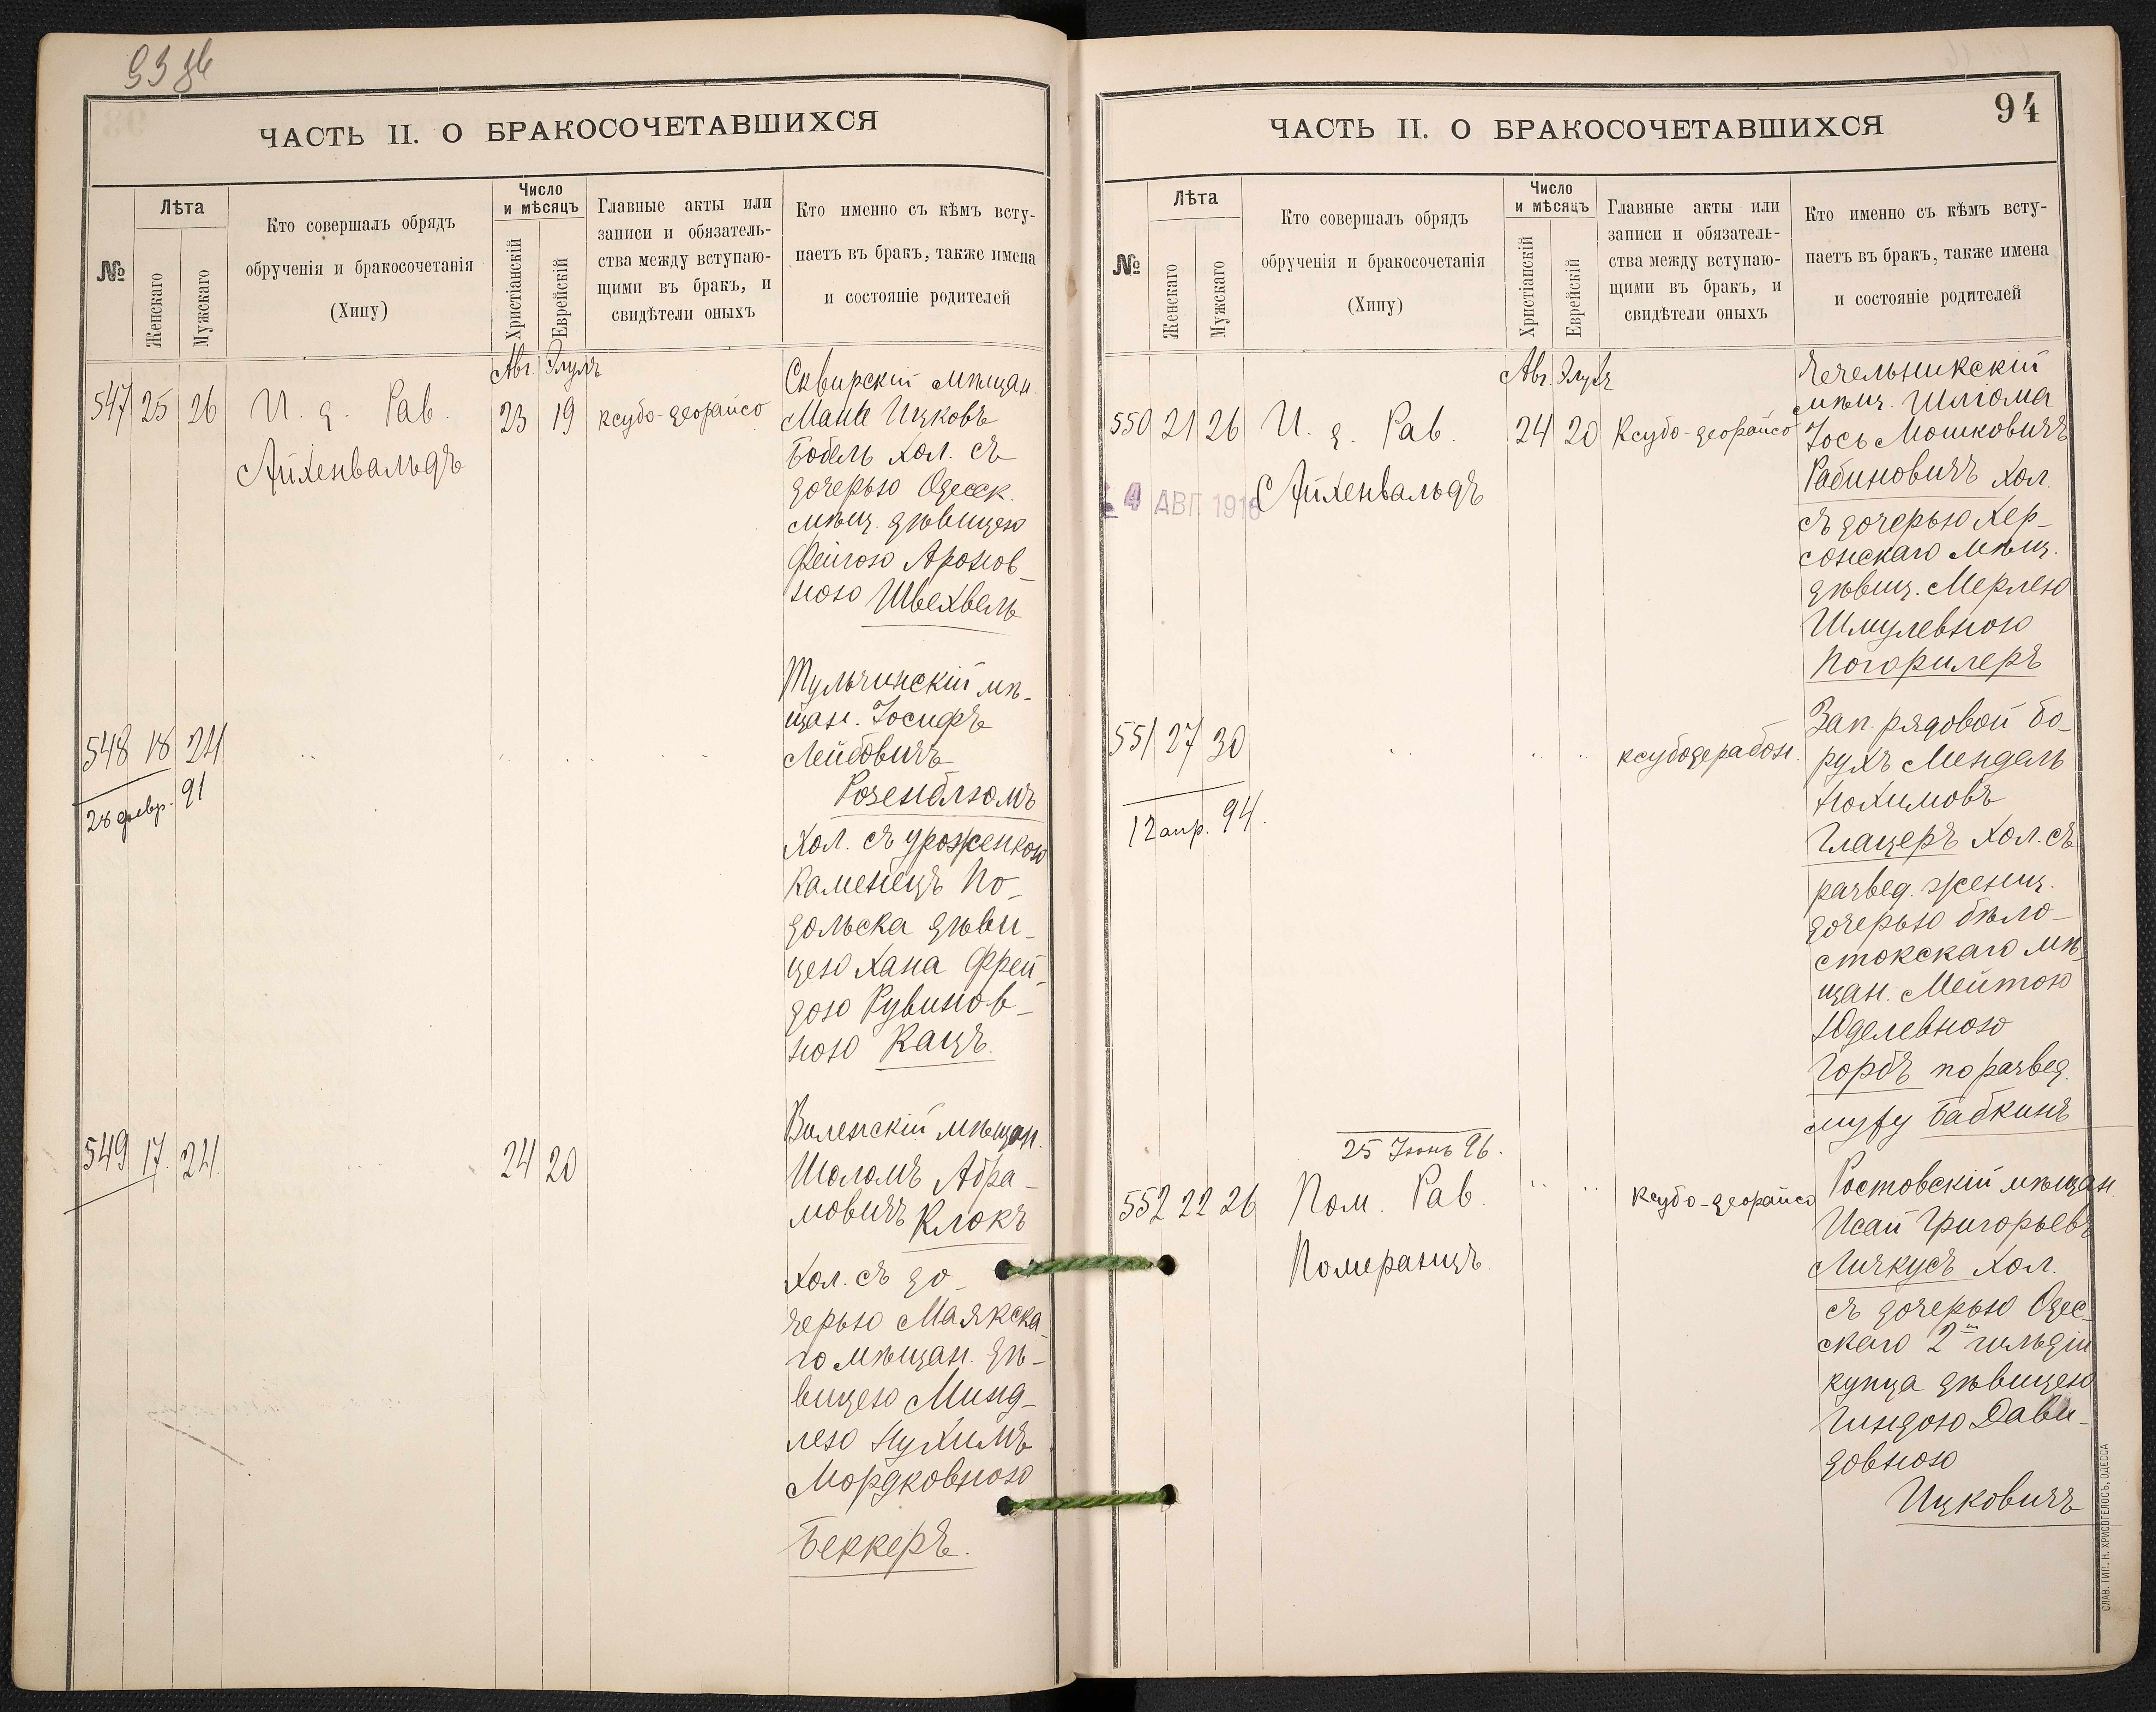 ЧАСТЬ II. О БРАКОСОЧЕТАВШИХСЯ
№
Лѣта
Женскаго
Мужскаго
Кто совершалъ обрядъ
обрученія и бракосочетанія
(Хипу)
Число
и мѣсяцъ
Христіанскій
Еврейскій
Главные акты или
записи и обязатель-
ства между вступаю-
щими въ бракъ, и
свидѣтели оныхъ
Кто именно съ кѣмъ всту-
паетъ въ бракъ, также имена
и состояніе родителей
Авг. Элулъ
547 25 26 И. д. Рав. 23 19 ксубо-деорайсо
Айхенвальдъ
Сквирскій мѣщан.
Мань Ицковъ
Бобель хол. съ
дочерью Одесск.
мѣщ. дѣвицею
Фейгою Аронов-
ною Швехвель
548 18 24
28 февр. 91
Тульчинскій мѣ-
щан. Іосифъ
Лейбовичъ
Розенблюмъ
хол. съ уроженкою
Каменецъ По-
дольска дѣви-
цею Хана Фрей-
дою Рувинов-
ною Кацъ.
549 17 24 24 20
Виленскій мѣщан.
Шоломъ Абра-
мовичъ Клокъ
хол. съ до-
черью Маякска-
го мѣщан. дѣ-
вицею Минд-
лею Нухимъ
Мордковною
Беккеръ.
94
ЧАСТЬ II. О БРАКОСОЧЕТАВШИХСЯ
№
Лѣта
Женскаго
Мужскаго
Кто совершалъ обрядъ
обрученія и бракосочетанія
(Хипу)
Число
и мѣсяцъ
Христіанскій
Еврейскій
Главные акты или
записи и обязатель-
ства между вступаю-
щими въ бракъ, и
свидѣтели оныхъ
Кто именно съ кѣмъ всту-
паетъ въ бракъ, также имена
и состояніе родителей
Авг. Элулъ
550 21 26 И. д. Рав. 24 20 Ксубо-деорайсо
Айхенвальдъ
4 АВГ. 1916
Чечельникскій
мѣщ. Шліома
Іось Мошковичъ
Рабиновичъ хол.
съ дочерью Хер-
сонскаго мѣщ.
дѣвиц. Мерлею
Шмулевною
Погорилеръ
551 27 30 ксубодерабон.
12 апр. 94.
Зап. рядовой Бо-
рухъ Мендель
Нохимовъ
Глацеръ хол. съ
развед. женщ.
дочерью бѣло-
стокскаго мѣ-
щан. Мейтою
Юделевною
Горбъ по развед.
мужу Бабкинъ
25 Іюнь 96.
552 22 26 Пом. Рав. ксубо-деорайсо
Померанцъ.
Ростовскій мѣщан.
Исай Григорьевъ
Личкусъ хол.
съ дочерью Одес-
скаго 2й гильдіи
купца дѣвицею
Гиндою Дави-
довною
Ицковичъ
СЛАВ. ТИП. Н. ХРИСОГЕЛОСЪ, ОДЕССА